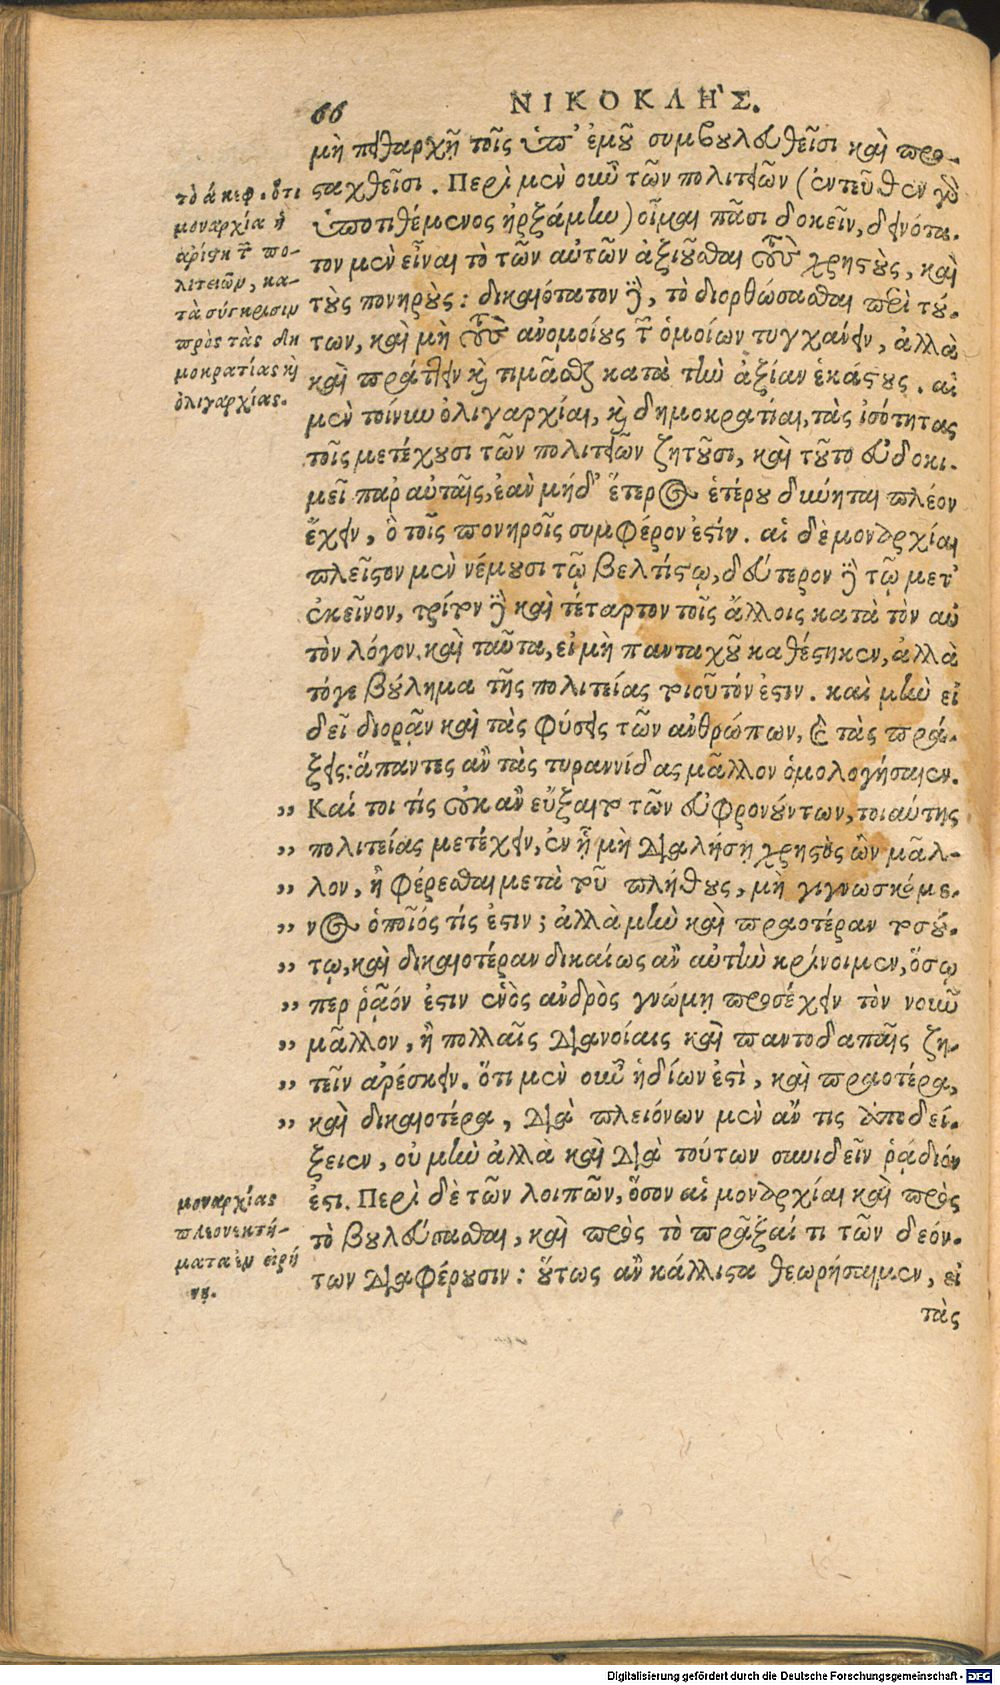 66
ΝΙΚΟΚΛΗ῀Σ.
μὴ πειθαρχῇ τοῖς ὑπ' ἐμοῦ συμβουλευθεῖσι καὶ προ-
σταχθεῖσι. Περὶ μὲν οὖν τῶν πολιτειῶν (ἐντεῦθεν γὸ
ὑποτιθέμενος ἠρξάμην) οἶμαι πᾶσι δοκεῖν, δεινότα-
τον μὲν εἶναι τὸ τῶν αὐτῶν ἀξιοῦσθαι τοὺς χρηστοὺς, καὶ
τοὺς πονηροὺς: δικαιότατον δὲ, τὸ διορθώσασθαι περὶ τού-
των, καὶ μὴ τοὺς ἀνομοίους τῶν ὁμοίων τυγχάνειν, ἀλλὰ
καὶ πράττειν καὶ τιμᾶσθαι κατὰ τὴν ἀξίαν ἑκάστους. αἱ
μὲν τοίνυν ὀλιγαρχίαι, καὶ δημοκρατίαι, τὰς ἰσότητας
τοῖς μετέχουσι τῶν πολιτειῶν ζητοῦσι, καὶ τοῦτο εὐδοκι-
μεῖ παρ' αὐταῖς, ἐὰν μήδ' ἕτερος ἑτέρου δύνηται πλέον
ἔχειν, ὃ τοῖς πονηροῖς συμφέρον ἐστίν. αἱ δὲ μοναρχίαι
πλεῖστον μὲν νέμουσι τῷ βελτίστῳ, δεύτερον δὲ τῷ μετ'
ἐκεῖνον, τρίτον δὲ καὶ τέταρτον τοῖς ἄλλοις κατὰ τὸν αὐ
τὸν λόγον. καὶ ταῦτα, εἰ μὴ πανταχοῦ καθέστηκεν, ἀλλὰ
τόγε βούλημα τῆς πολιτείας τοιοῦτόν ἐστιν. καὶ μὴν εἰ
δεῖ διορᾷν καὶ τὰς φύσεις τῶν ἀνθρώπων, καὶ τὰς πρά-
ξεις: ἅπαντες ἂν τὰς τυραννίδας μᾶλλον ὁμολογήσαιεν.
,, Καί τοι τίς οὐκ ἂν εὔξαιτο τῶν εὐφρονούντων, τοιαύτης
,, πολιτείας μετέχειν, ἐν ᾗ μὴ διαλήσῃ χρηστὸς ὢν μᾶλ-
,, λον, ἢ φέρεσθαι μετὰ τοῦ πλήθους, μὴ γιγνωσκόμε-
,, νος ὁποῖός τίς ἐστιν; ἀλλὰ μὴν καὶ πραοτέραν τοσού-
,, τῳ, καὶ δικαιοτέραν δικαίως ἂν αὐτὴν κρίνοιμεν, ὅσῳ
,, περ ῥᾷόν ἐστιν ἑνὸς ἀνδρὸς γνώμῃ προσέχειν τὸν νοῦν
,, μᾶλλον, ἢ πολλαῖς διανοίαις καὶ παντοδαπαῖς ζη-
,, τεῖν ἀρέσκειν. ὅτι μὲν οὖν ἡδίων ἐστὶ, καὶ πραοτέρα,
,, καὶ δικαιοτέρα, διὰ πλειόνων μὲν ἄν τις ἀποδεί-
ξειεν, οὐ μὴν ἀλλὰ καὶ διὰ τούτων συνιδεῖν ῥᾴδιόν
ἐστι. Περὶ δὲ τῶν λοιπῶν, ὅσον αἱ μοναρχίαι καὶ πρὸς
τὸ βουλεύσασθαι, καὶ πρὸς τὸ πρᾶξαί τι τῶν δεόν-
των διαφέρουσιν: οὕτως ἂν κάλλιστα θεωρήσαιμεν, εἰ
τὰς
τὸ ά κεφ. ὅτι
μοναρχία ἡ
ἀρίστη τῶν πο-
λιτειῶν, κα-
τὰ σύγκρισιν
πρὸς τὰς δη
μοκρατίας καὶ
ὀλιγαρχίας.
μοναρχίας
πλεονεκτή-
ματα ἐν εἰρή
νῃ.
Digitalisierung gefördert durch die Deutsche Forschungsgemeinschaft - DFG